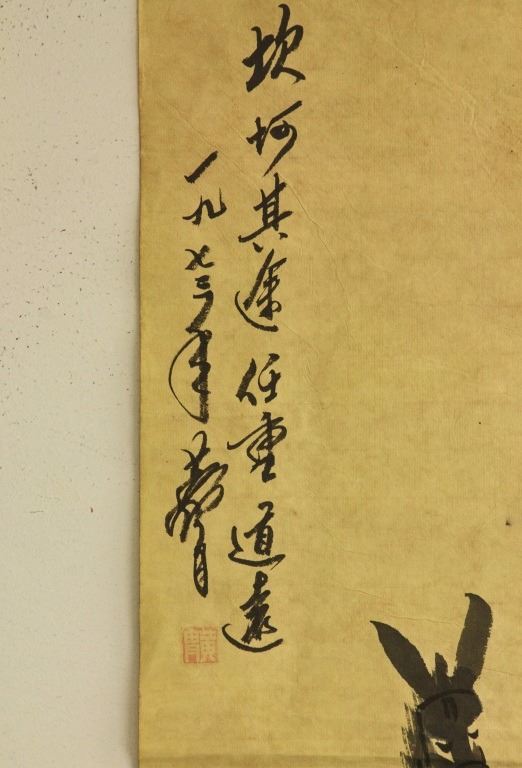 坎坷其途任重道遠
一九七三年黄胄
黄胄